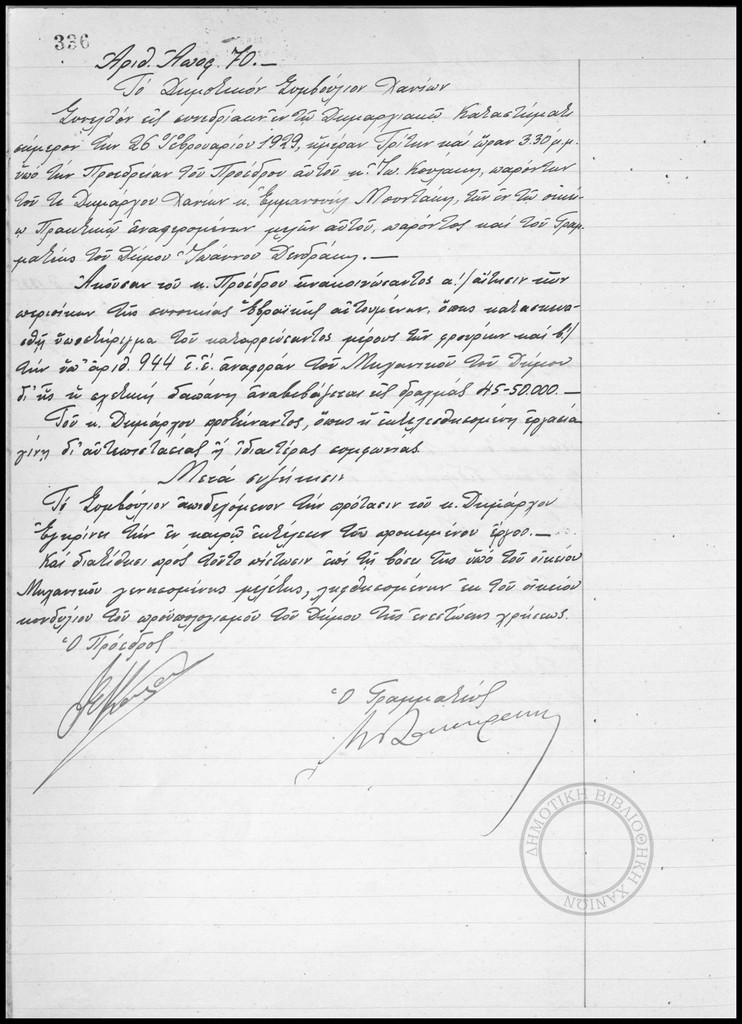 336
Ἀριθ. Ἀποφ. 70.—
Τό Δημοτικόν Συμβούλιον Χανίων
Συνελθόν εἰς συνεδρίασιν ἐν τῷ Δημαρχιακῷ Καταστήματι
σήμερον τήν 26 Φεβρουαρίου 1929, ἡμέραν Τρίτην καί ὥραν 3.30 μ.μ.
ὑπό τήν Προεδρείαν τοῦ Προέδρου αὐτοῦ κ. Ἰω. παρόντων
τοῦ τε Δημάρχου Χανίων κ. Ἐμμανουήλ Μουντάκη, τῶν ἐν τῷ οἰκεί-
ῳ Πρακτικῷ ἀναφερομένων μελῶν αὐτοῦ, παρόντος καί τοῦ Γραμ-
ματέως τοῦ Δήμου Ἰωάννου Δενδράκη.—
Ἀκοῦσαν τοῦ κ. Προέδρου ἀνακοινώσαντος α!/ αἴτησιν τῶν
περιοίκων τῆς συνοικίας Ἑβραϊκῆς αἰτουμένων, ὅπως κατασκευα-
σθῇ ὑποστήριγμα τοῦ καταρρεύσαντος μέρους τῶν φρουρίων καί β!/
τήν ὑπ' ἀριθ. 944 ἀναφοράν τοῦ Μηχανικοῦ τοῦ Δήμου
δι' ἧς ἡ σχετική δαπάνη ἀναβιβάζεται εἰς δραχμάς 45-50.000.—
Τοῦ κ. Δημάρχου προτείναντος, ὅπως ἡ ἐκτελεσθησομένη ἐργασία
γίνῃ δι' αὐτεπιστασίας ἤ ἰδιαιτέρας συμφωνίας
Μετά συζήτησιν
Τό Συμβούλιον ἀποδεχόμενον τήν πρότασιν τοῦ κ. Δημάρχου
Ἐγκρίνει τήν ἐν καιρῷ ἐκτέλεσιν τοῦ προκειμένου ἔργου.—
Καί διατίθησι πρός τοῦτο πίστωσιν ἐπί τῇ βάσει τῆς ὑπό τοῦ οἰκείου
Μηχανικοῦ γενησομένης μελέτης, ληφθησομένην ἐκ τοῦ οἰκείου
κονδυλίου τοῦ προϋπολογισμοῦ τοῦ Δήμου τῆς ἐνεστώσης χρήσεως.
Ὁ Πρόεδρος
Ὁ Γραμματεύς
ΔΗΜΟΤΙΚΗ ΒΙΒΛΙΟΘΗΚΗ ΧΑΝΙΩΝ